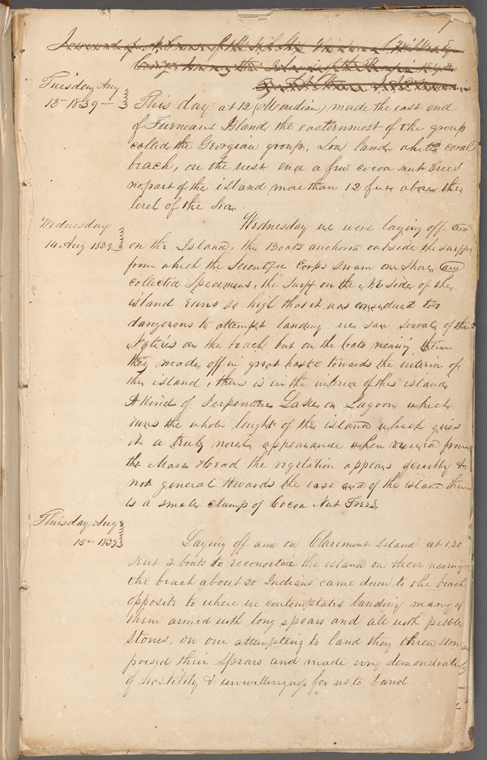 Journal of A Cruise of the
Tuesday Aug
13th 1839
This day at 12 (Meridian) made the east end
of Furneaus Island the easternmost of the group
called the Georgian group, Low land white coral
beach, on the west end a few cocoa nut Trees
no part of the island more than 12 feet above the
level of the Sea
Wednesday
14 Aug 1839
Wednesday we were laying off and
on the Island, the Boats anchoring outside the surff
from which the Scientific Corps swam on Shore and
collected Specimens, the Surff on the side of the
island runs so high that it was considerd too
dangerous to attempt landing we saw Several of the
Natives on the beach but on the boats nearing them
they made off in great haste towards the interior of
the island, there is in the interior of this island
A kind of Serpentine Lake or Lagoon which
runs the whole lenght of the island which gives
it a truly novel appearance when viewed from
the Mast Head the vegitation appears &
not general towards the east end of the island there
is a small clump of Cocoa Nut Trees.
Thursday Aug
15th 1839
Laying off and on Claremont Island at 1.30
Sent 3 boats to reconoitre the island on their nearing
the beach about 20 Indians came down to the beach
opposite to where we contemplated landing many of
them armed with long spears and all with pebble
stones. on our attempting to land they threw stones
poised their Spears and made evry demonstrati
of hostility & unwillingness for us to land